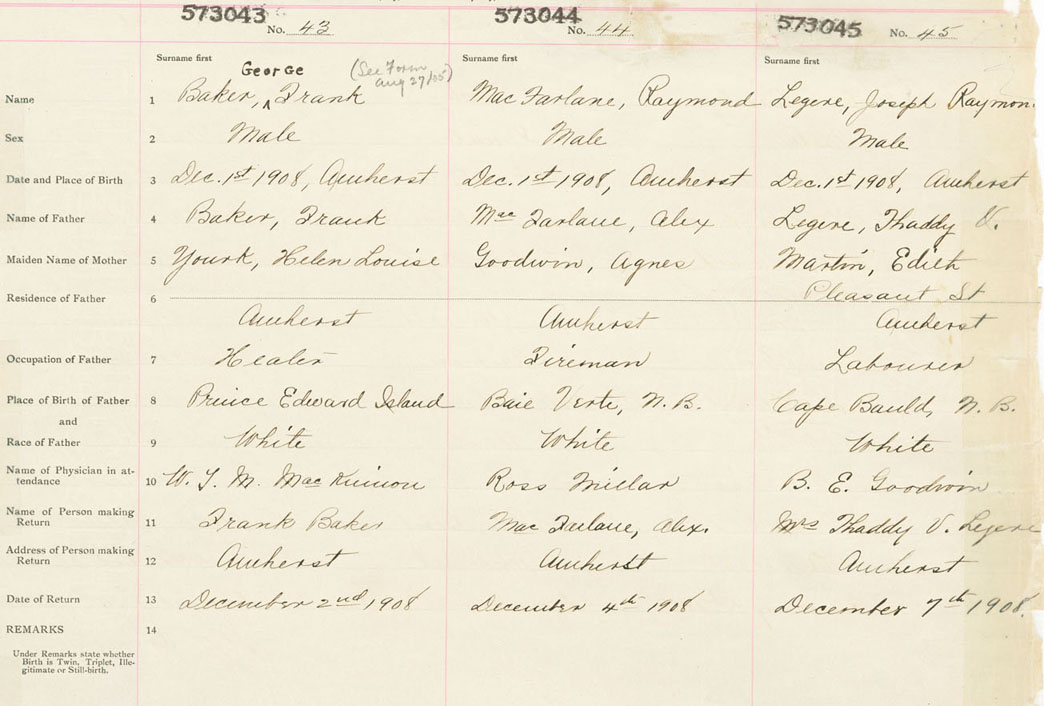 573043 573044 573045
No. 43 No. 44 No. 45
Surname first Surname first Surname first
George (See Form Aug 27/05)
Name 1 Baker, ^ Frank Mac Farlane, Raymond Legere, Joseph Raymon
Sex 2 Male Male Male
Date and Place of Birth 3 Dec. 1st 1908, Amherst Dec. 1st 1908, Amherst Dec. 1st 1908, Amherst
Name of Father 4 Baker, Frank Mac Farlane, Alex Legere, Thaddy V.
Maiden Name of Mother 5 Yourk, Helen Louise Goodwin, Agnes Martin, Edith
Residence of Father 6 Pleasant St
Amherst Amherst Amherst
Occupation of Father 7 Healer Fireman Labourer
Place of Birth of Father 8 Prince Edward Island Baie Verte, N.B. Cape Bauld, N.B.
and
Race of Father 9 White White White
Name of Physician in at-
tendance 10 W. T. M. MacKinnon Ross Millar B. E. Goodwin
Name of Person making
Return 11 Frank Baker Mac Farlane, Alex. Mrs Thaddy V. Legere
Address of Person making
Return 12 Amherst Amherst Amherst
Date of Return 13 December 2nd 1908 December 4th 1908 December 7th 1908.
REMARKS 14
Under Remarks state whether
Birth is Twin, Triplet, Ille-
gitimate or Still-birth.